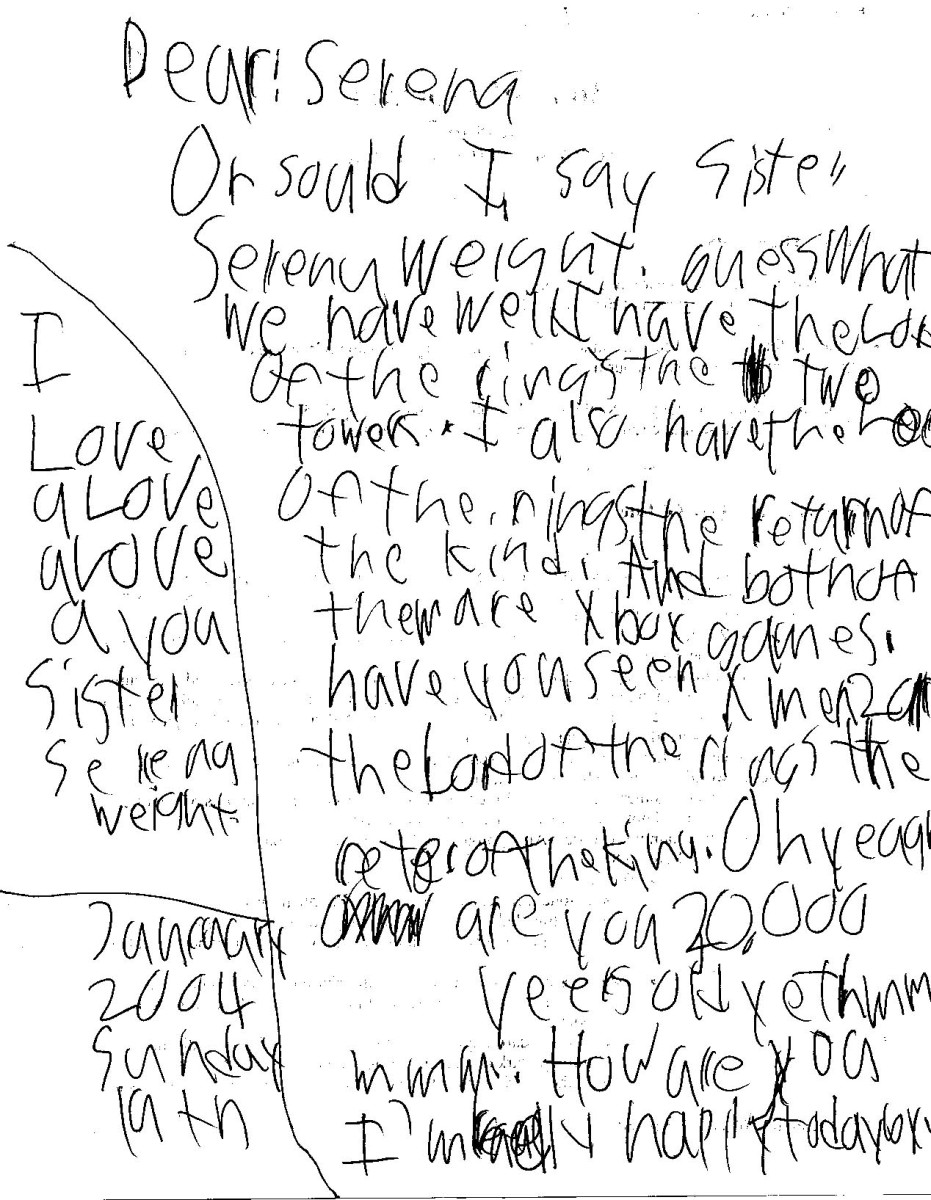 Dear! Serena
Or sould I say Sister
Serena weight. guess What
we have well I have the Lor
Of the rings the two
towers. I also have the Lo
Of the rings the return of
the kind. And both of
them are X box games.
have you seen X men 2
the Lord of the rings the
reter of the king. Oh yeah
are you 20,000
yeers old yet hmm
mmm. How are you
I'm really happy today
I
Love
a Love
a Love
a you
Sister
Serena
weight
January
2004
Sunday